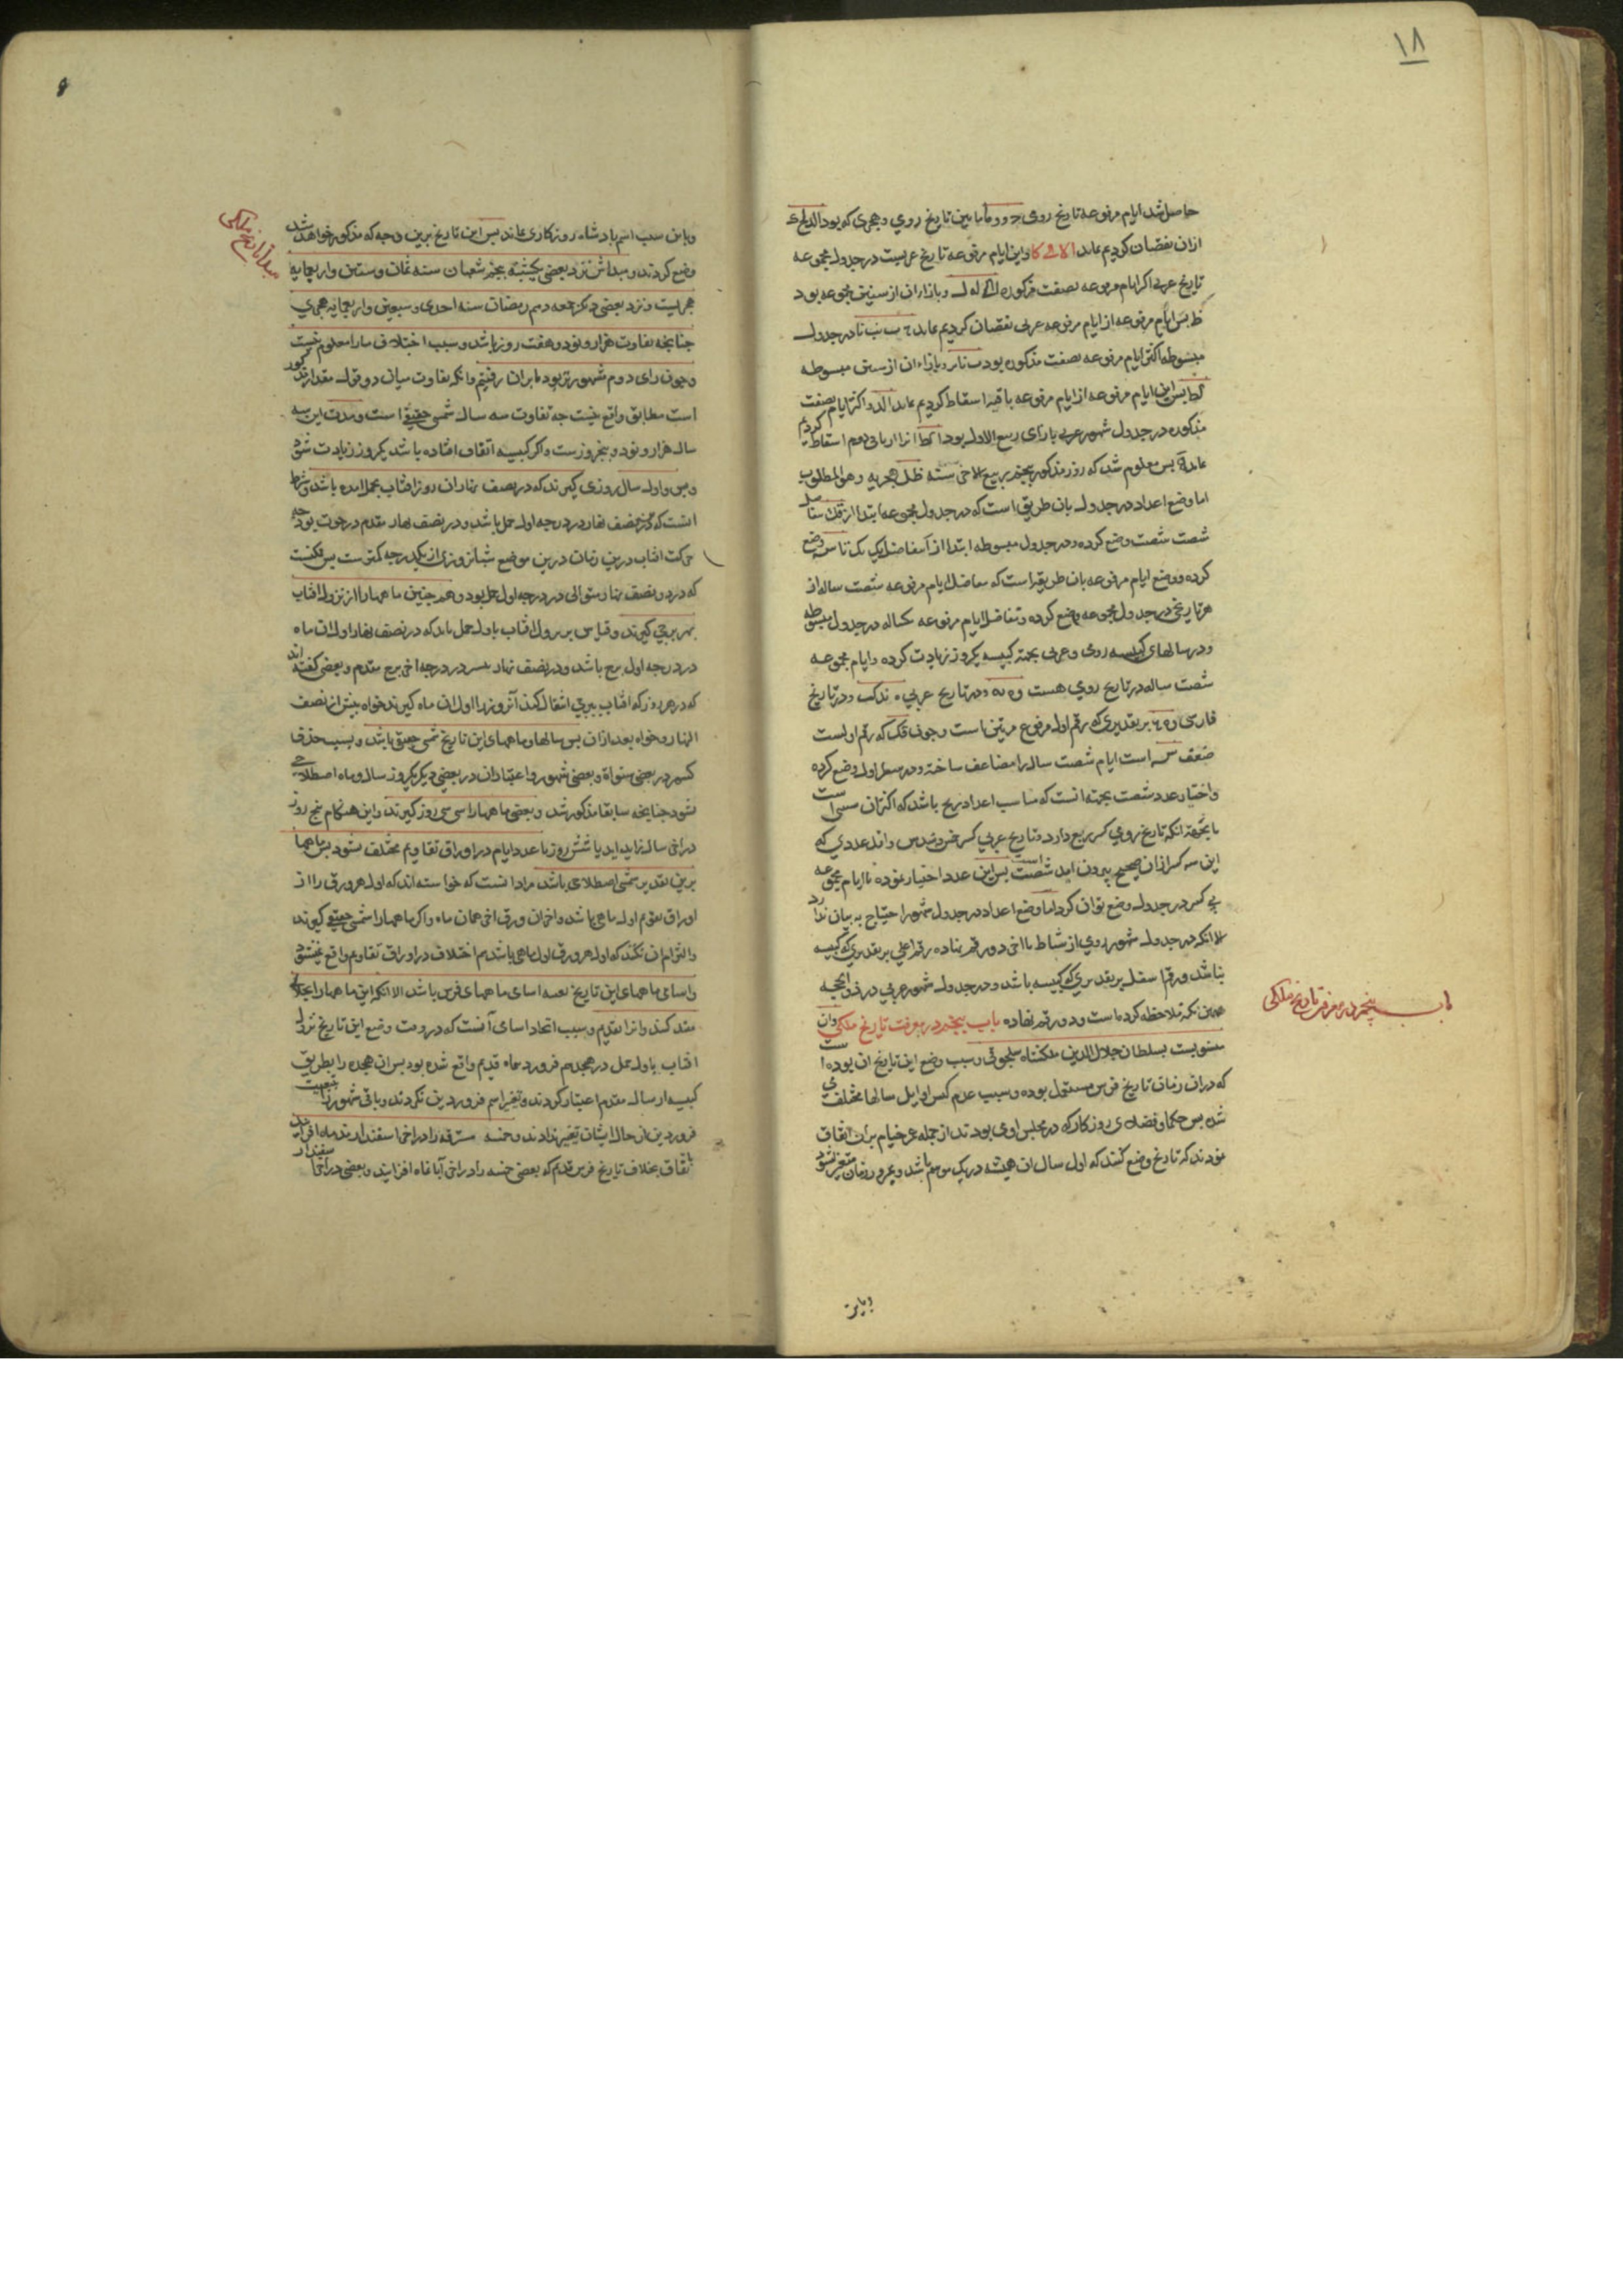 ١٨
حاصل شد ایام مرفوعه تاریخ رومی و ما بین تاریخ رومی و هجری که بود
ازان نقصان کردیم ماند واین ایام مرفوعه تاریخ عربیست در جدول مجموعه
تاریخ عربی اکثر ایام مرفوعه بصفت مذکوره وبازاء ان از سنین مجموعه بود
پس ایام مرفوعه از ایام مرفوعه عربی نقصان کردیم ماند در جدول
مبسوطه اکثر ایام مرفوعه بصفت مذکوره بود وبازاء ان از سنین مبسوطه
پس این ایام مرفوعه از ایام مرفوعه باقیه اسقاط کردیم ماند واکثر ایام بصفت
مذکوره در جدول شهور عربی بازای ربیع الاول بود انرا از باقی دوم اسقاط کردیم
ماند پس معلوم شد که روز مذکور پنجم ربیع الاخر سنه هجریه وهو المطلوب
اما وضع اعداد در جدول بان طریق است که در جدول مجموعه ابتدا از
شصت شصت وضع کرده ودر جدول مبسوطه ابتدا از بتفاضل یک یک تا وضع
کرده ووضع ایام مرفوعه بان طریق است که تفاضل ایام مرفوعه شصت ساله از
هر تاریخی در جدول مجموعه وضع کرده وتفاضل ایام مرفوعه یکساله در جدول مبسوطه
ودر سالهای کبیسه رومی وعربی بجهة کبیسه یکروز زیادت کرده وایام مجموعه
شصت ساله در تاریخ رومی هست ودر تاریخ عربی ودر تاریخ
فارسی بر تقدیری که رقم اول مرفوع مرتین است وچون که رقم اولست
ضعف است ایام شصت ساله را مضاعف ساخته ودر سطر اول وضع کرده
واختیار عدد شصت بجهة انست که مناسب اعداد زیج باشد که اکثران است
یا بجهة انکه تاریخ رومی کسر ربع دارد وتاریخ عربی کسر خمس وسدس واقل عددی که
این سه کسر ازان صحیح بیرون اید شصت است پس این عدد اختیار نموده تا ایام مجموعه
بی کسر در جدول وضع توان کرد اما وضع اعداد در جدول شهور احتیاج به بیان ندارد
الا انکه در جدول شهور رومی از شباط تا اخر دو رقم نهاده رقم اعلی بر تقدیری که کبیسه
نباشد ورقم اسفل بر تقدیری که کبیسه باشد ودر جدول شهور عربی در ذو الحجه
همین نکته ملاحظه کرده است ودو رقم نهاده باب پنجم در معرفت تاریخ ملکی وان
منسوبست بسلطان جلال الدین ملکشاه سلجوقی وسبب وضع این تاریخ ان بوده است
که دران زمان تاریخ فرس مستعمل بوده وسبب عدم کبس اوایل سالها مختلف می
شد پس حکما وفضلای روزکار که در مجلس اوی بودند از جمله عمر خیام بران اتفاق
نمودند که تاریخ وضع کنند که اول سال ان همیشه در یک موسم باشد وبمرور زمان متغیر نشود
باب پنجم در معرفت تاریخ ملکی
وباین سبب اسم پادشاه روزکاری بماند پس این تاریخ برین وجه که مذکور خواهد شد
وضع کردند ومبداش نزد بعضی یکشنبه پنجم شعبان سنه ثمان وستین واربعمایه
هجریست ونزد بعضی دیکر جمعه دهم رمضان سنه احدی وسبعین واربعمایه هجری
چنانچه تفاوت هزار ونود وهفت روز باشد وسبب اختلاف ما را معلوم نیست
وچون رای دوم مشهورتر بود ما بران رفتیم وانکه تفاوت میان دو قول مقدار مذکور
است مطابق واقع نیست چه تفاوت سه سال شمسی حقیقی است ومدت این سه
سال هزار ونود وپنجروزست واکر کبیسه اتفاق افتاده باشد یکروز زیادت شود
واول سال روزی کیرند که در نصف نهار ان روز افتاب بحمل امده باشد وشرط
انست که در نصف نهار در درجه اول حمل باشد ودر نصف نهار مقدم در حوت بود چه
حرکت افتاب درین زمان درین موضع شبانروزی از یکدرجه کمترست پس ممکنست
که در دو نصف نهار متوالی در درجه اول حمل بود وهم چنین ماهها را از نزول افتاب
بهر برجی کیرند وقیاس بر نزول افتاب باول حمل باید که در نصف نهار اول ان ماه
در درجه اول برج باشد ودر نصف نهار در درجه اخر برج مقدم وبعضی کفته اند
که در هر روز که افتاب ببرجی انتقال کند آنروز را اول ان ماه کیرند خواه پیش از نصف
النهار وخواه بعد ازان پس سالها وماههای این تاریخ شمسی حقیقی باشد وبسبب حذف
کسر در بعضی سنوات وبعضی شهور واعتبار ان در بعضی دیکر یکروز سال وماه اصطلاحی
شود چنانچه سابقا مذکور شد وبعضی ماهها را سی سی روز کیرند واین هنکام پنج روز
در اخر سال زاید اید یا شش روز تا عدد ایام در اوراق تقاویم مختلف نشود پس ماهها
برین تقدیر شمسی اصطلاحی باشد مراد انست که خواسته اند که اول هر ورق را از
اوراق تقویم اول ماهی باشد واخر ان ورق اخر همان ماه واکر ماهها را شمسی حقیقی کیرند
والتزام ان نکنند که اول هر ورق اول ماهی باشد هم اختلاف در اوراق تقاویم واقع نمیشود
واسامی ماههای این تاریخ بعینه اسامی ماههای فرس باشد الا انکه این ماهها را بجلالی
مقید کنند وانرا بقدیم وسبب اتحاد اسامی آنست که در وقت وضع این تاریخ نزول
افتاب باول حمل در هجدهم فروردینماه قدیم واقع شده بود پس ان هجده را بطریق
کبیسه از سال مقدم اعتبار کردند وتغیر اسم فروردین نکردند وباقی شهور را بتبعیت
فروردین از حال ایشان تغیر ندادند وخمسه مسترقه را در اخر اسفندارمذماه افزایند
باتفاق بخلاف تاریخ فرس قدیم که بعضی خمسه را در اخر آبانماه افزایند وبعضی در اخر اسفندار
مبدا تاریخ ملکی